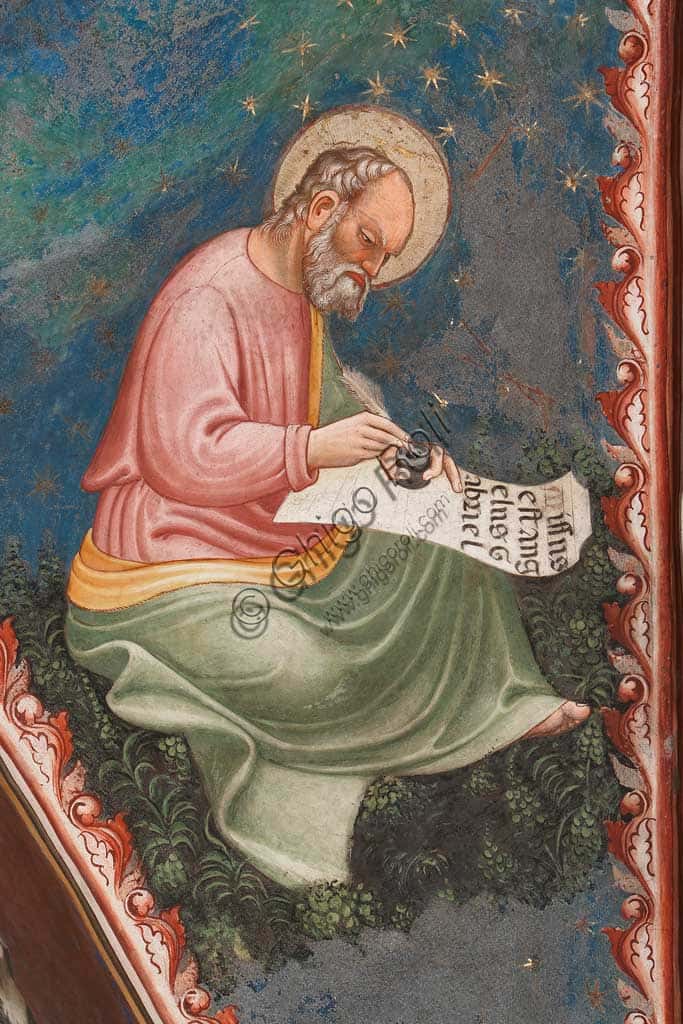 missus
est ang
elus G
abriel
© Ghigo Roli
www.ghigoroli.com